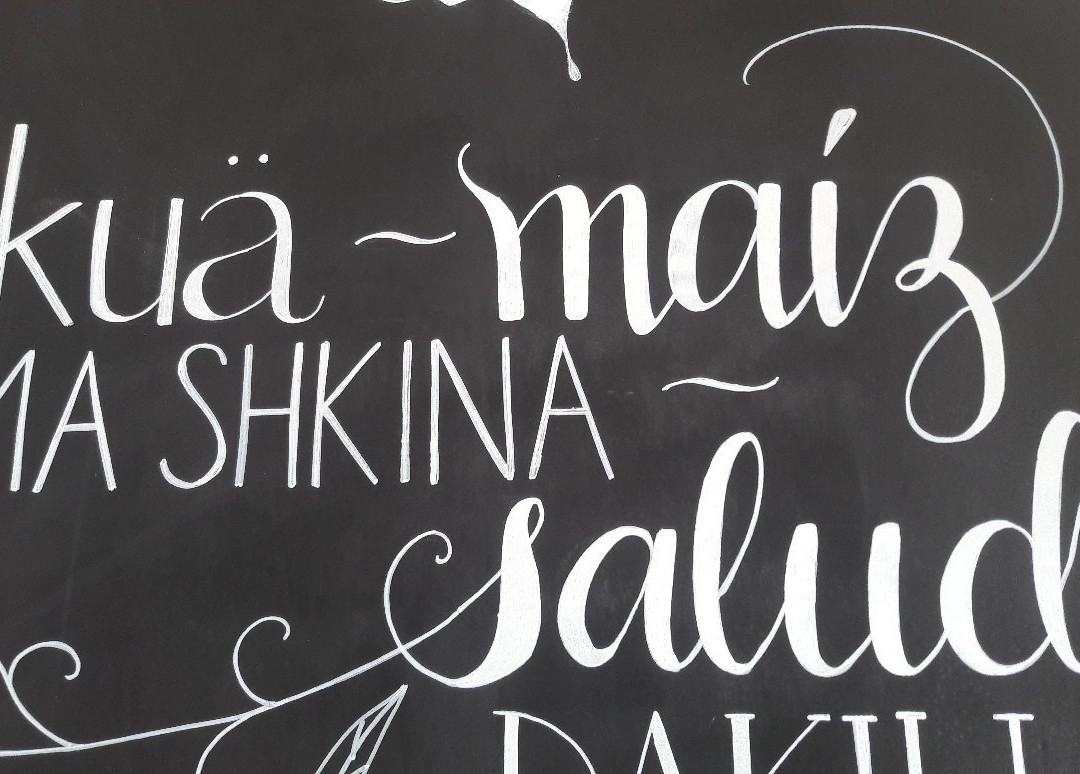 kuä ~ maíz
MA SHKINA ~
salud